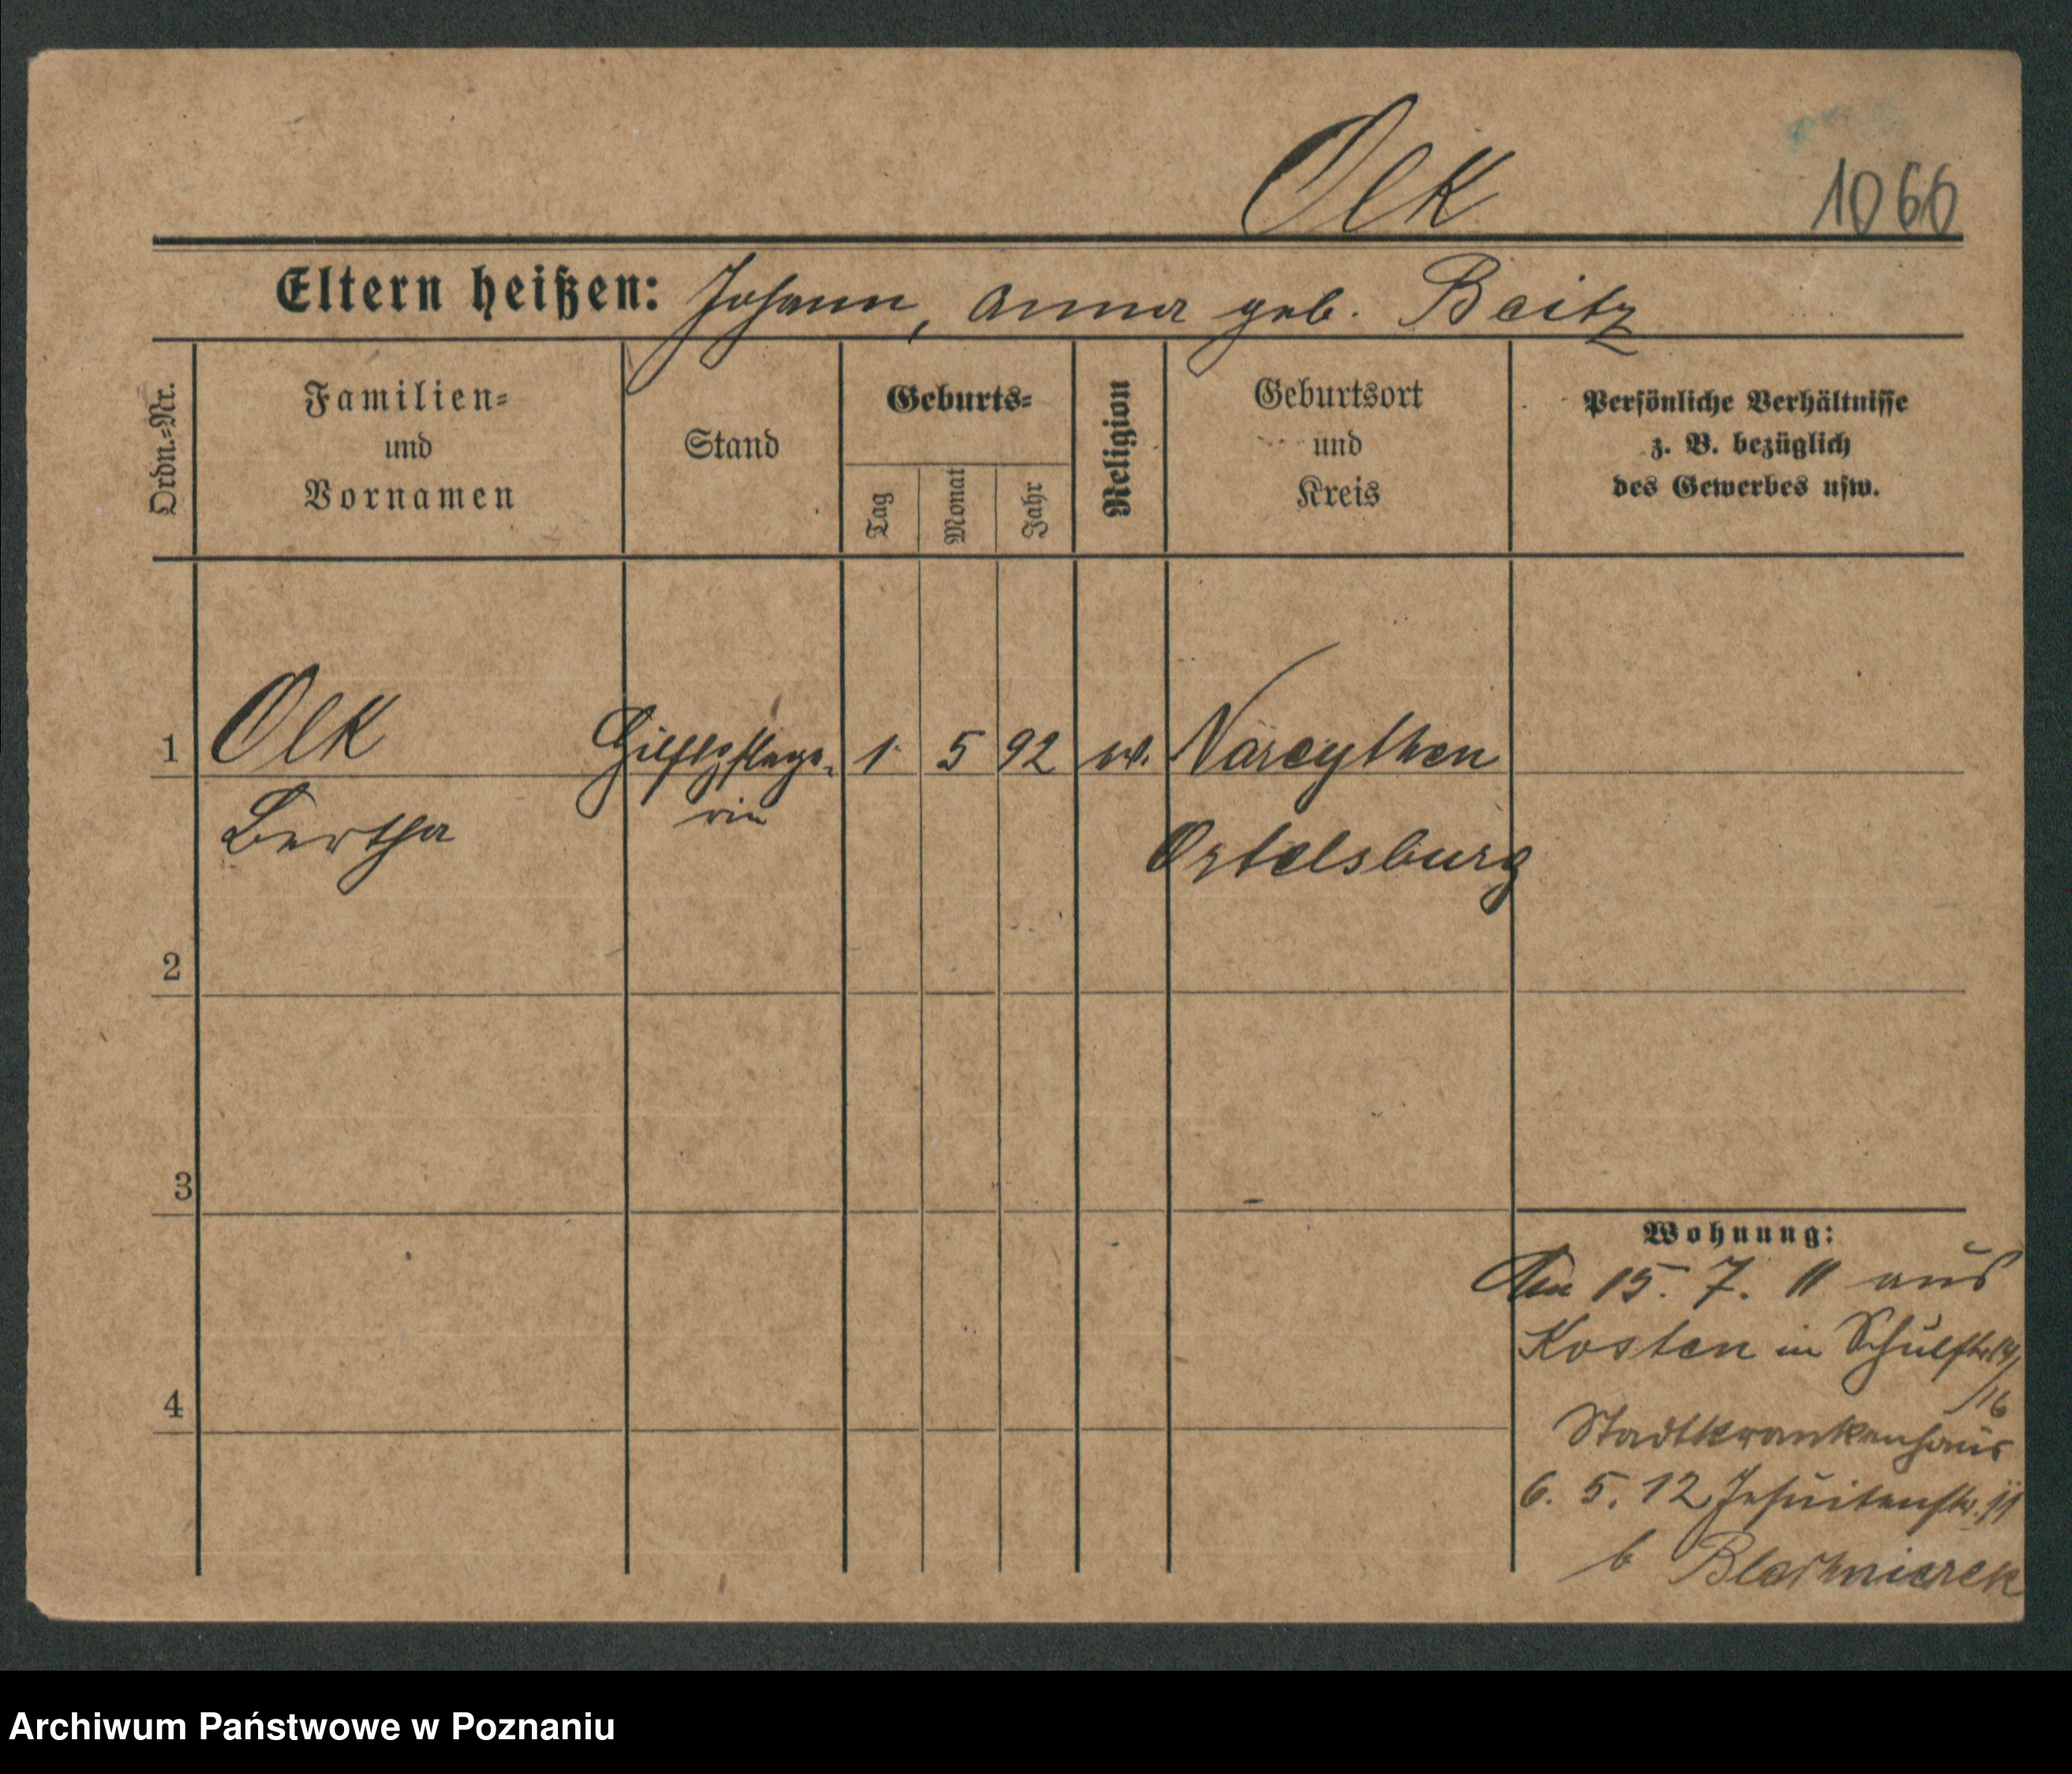 Olk 1066
Eltern heißen: Johann, Anna geb. Baitz
Ordn.=Nr.
Familien=
und
Vornamen
Stand
Geburts=
Tag
Monat
Jahr
Religion
Geburtsort
und
Kreis
Persönliche Verhältnisse
z. B. bezüglich
des Gewerbes usw.
1 Olk Hilfspflege- 1 5 92 ev. Narcythen
Bertha rin Ortelsburg
2
3
4
Wohnung:
Am 15. 7. 11 aus
Kosten in Schulstr. 14/
/16
Stadtkrankenhaus
6. 5. 12 Jesuitenstr. 11
b
Archiwum Państwowe w Poznaniu